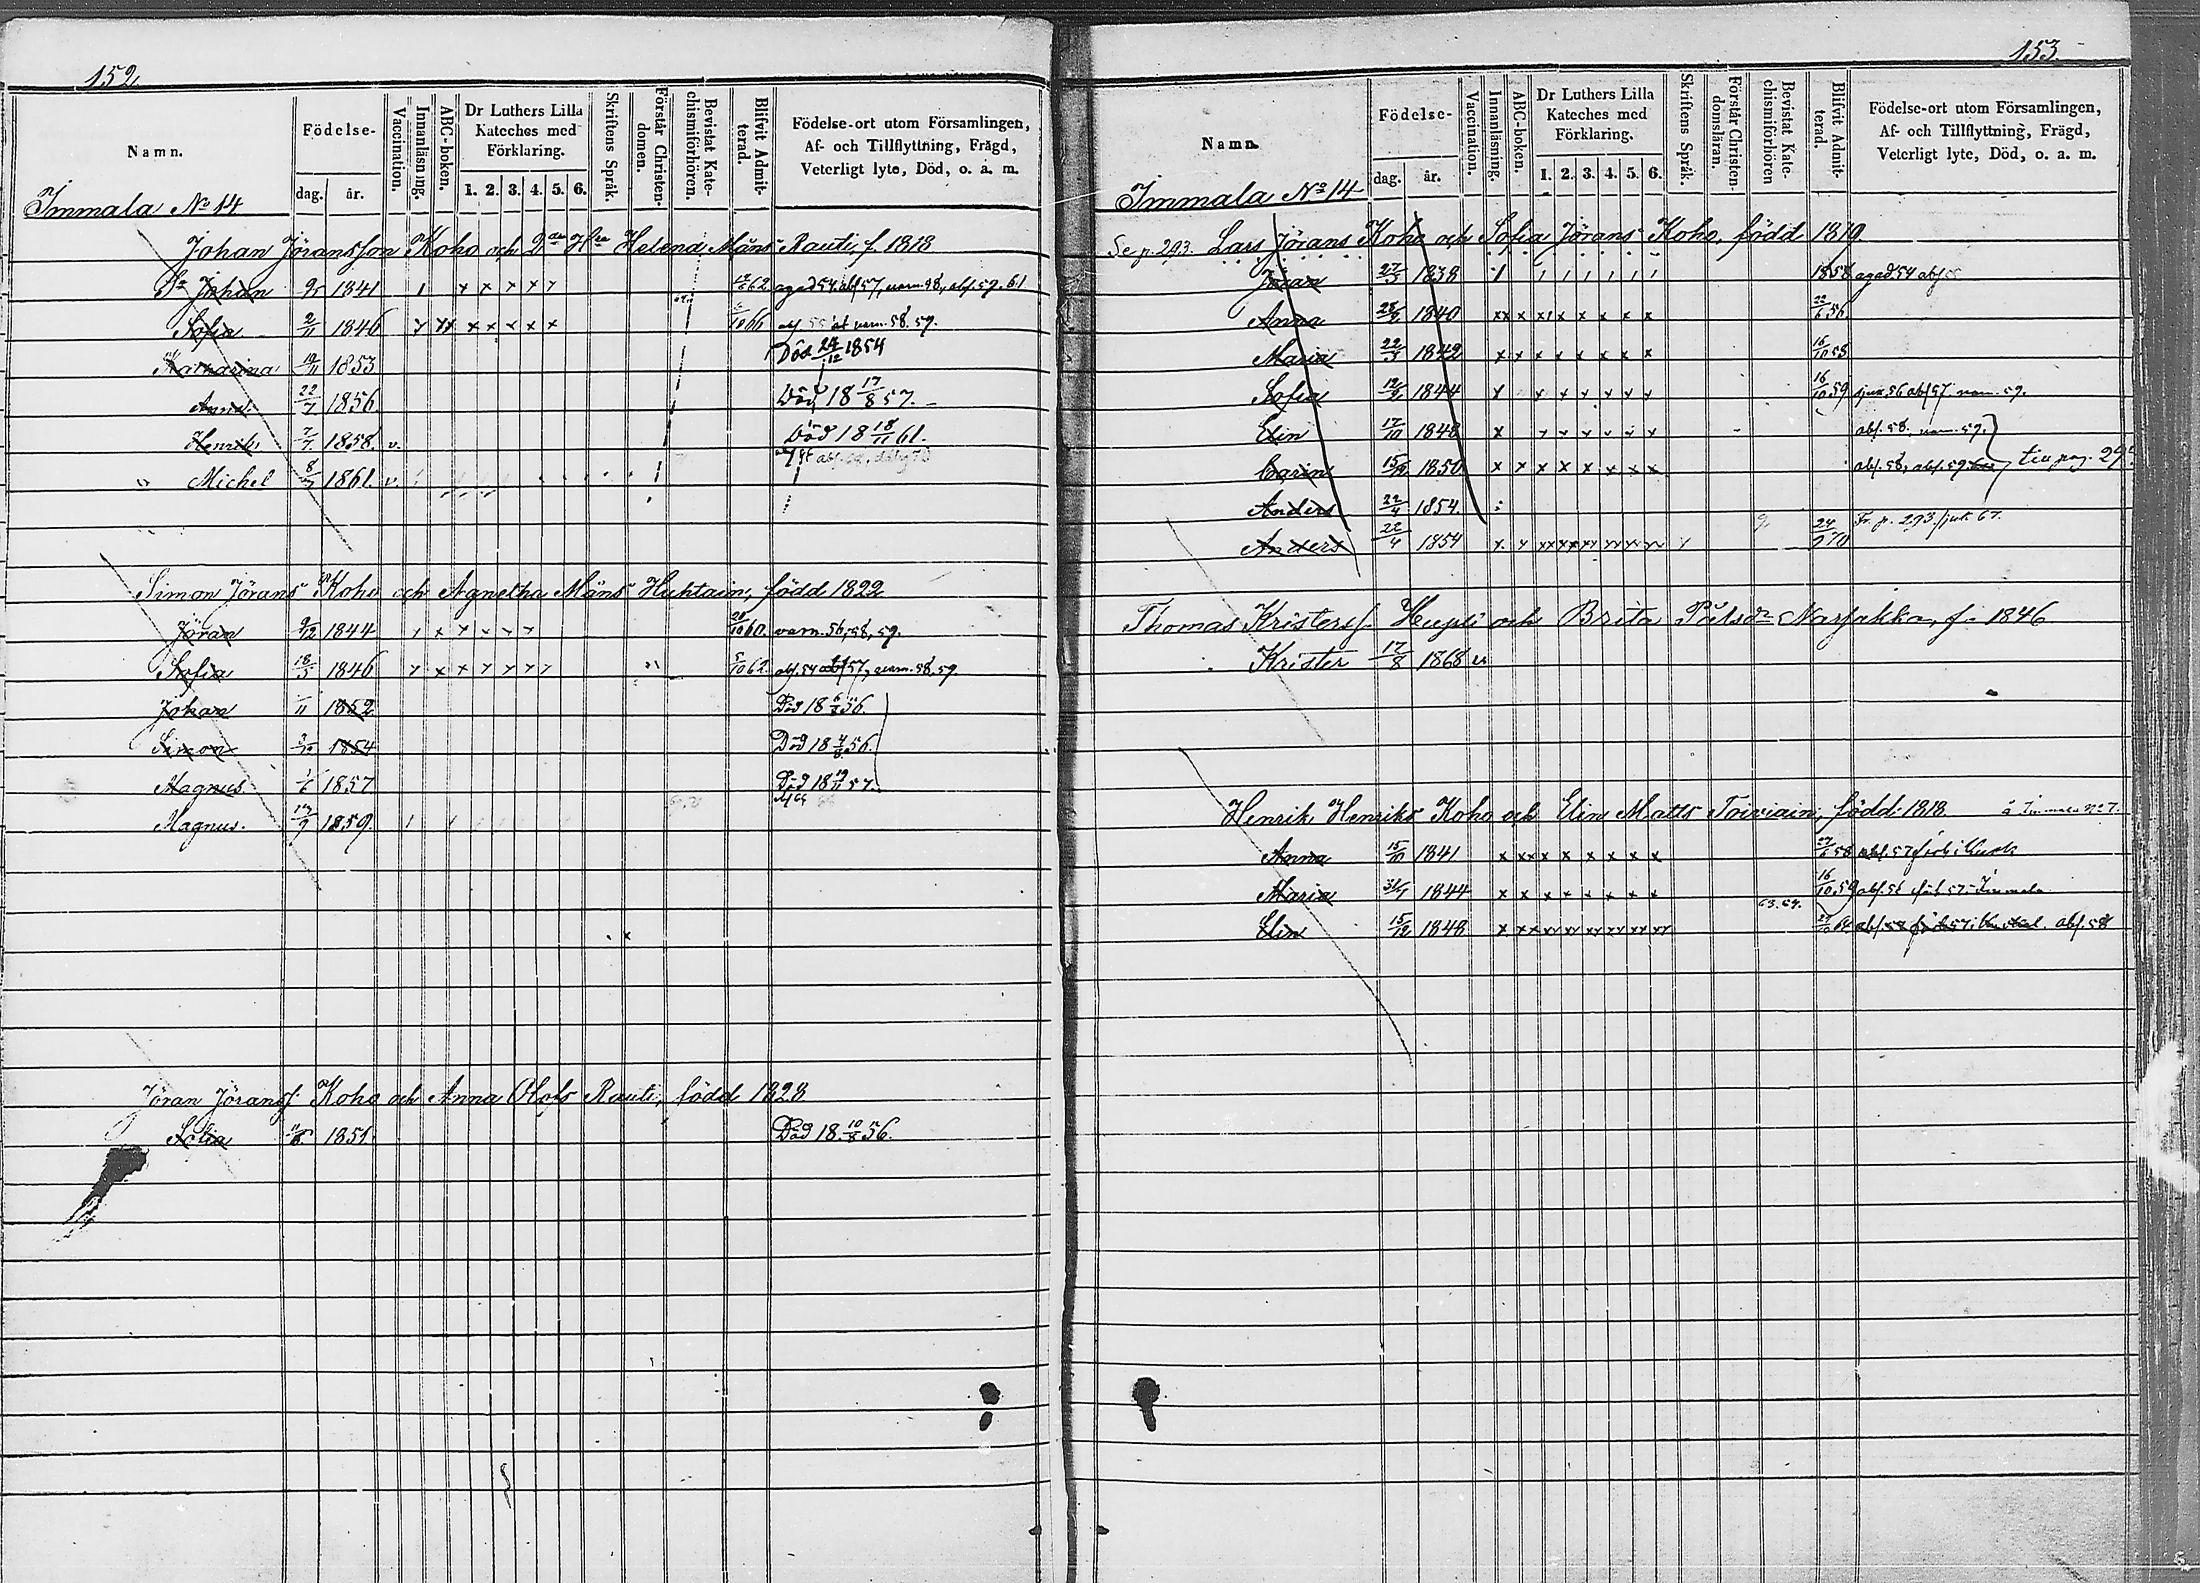 152.
Namn.
Födelse-
dag. år.
Vaccination.
Innanläsning.
ABC-boken.
Dr Luthers Lilla
Kateches med
Förklaring.
1. 2. 3. 4. 5. 6.
Skriftens Språk.
Förstår Christen-
domen.
Bevistat Kate-
chismiförhören.
Blifvit Admit-
terad.
Födelse-ort utom Församlingen,
Af- och Tillflyttning, Frägd,
Veterligt lyte, Död, o. a. m.
Immala No 14
Johan Jöransson Koho och 2dra Hu Helena Måns Rauti, f. 1818
Johan 1841 62
Sofia 2/11 1846 66
Katharina 19/11 1853 Död 24/12 1854
Anna 22/7 1856 Död 18 17/8 57.
Henrik 7/7 1858. v. Död 18 18/11 61.
Michel 1861. v.
Simon Jörans Koho och Agnetha Måns Huhtain, född 1822
Jöran 9/12 1844 60. varn. 56, 58, 59.
Sofia 18/5 1846 5/10 62. abs. 54 abs 57, varn. 58. 59.
Johan 1852 Död 18 56.
Simon 1854 Död 18 4/8 56.
Magnus 1857 Död 18 19/11 57.
Magnus. 1859.
Jöran Jöranss. Koho och Anna Olofs Rauti, född 1828
Sofia 1851 Död 18 10/8 56.
153
Namn.
Födelse-
dag. år.
Vaccination.
Innanläsning.
ABC-boken.
Dr Luthers Lilla
Kateches med
Förklaring.
1. 2. 3. 4. 5. 6.
Skriftens Språk.
Förstår Christen-
domsläran.
Bevistat Kate-
chismiförhören
Blifvit Admit-
terad.
Födelse-ort utom Församlingen,
Af- och Tillflyttning, Frägd,
Veterligt lyte, Död, o. a. m.
Immala No 14
Se p. 293. Lars Jörans Koho och Sofia Jörans Koho, född 1819
Jöran 27/5 1838 1858 agad 54 abs 55
Anna 1840 56.
Maria 1842 16/10 58
Sofia 1844 16/10 59 sjuk 56 abs 57 varn. 59.
Elin 17/10 1848 abs. 58, varn. 59.
Carin 1850 abs. 58, abs. 59. till pag.
Anders 22/4 1854.
Anders 22/4 1854 70 Fr. p. 293. sjuk 67.
Thomas Kristerss. Hupli och Brita Pålsdr Narjakka, f. 1846
Krister 17/8 1868 v
Henrik Henriks Koho och Elin Matts Toiviain, född 1818. å Immala No 7.
Anna 15/10 1841 58 abs. 57
Maria 31/1 1844 16/10 59 abs. 56 Immala
Elin 15/12 1848 63. 64. abs. 58